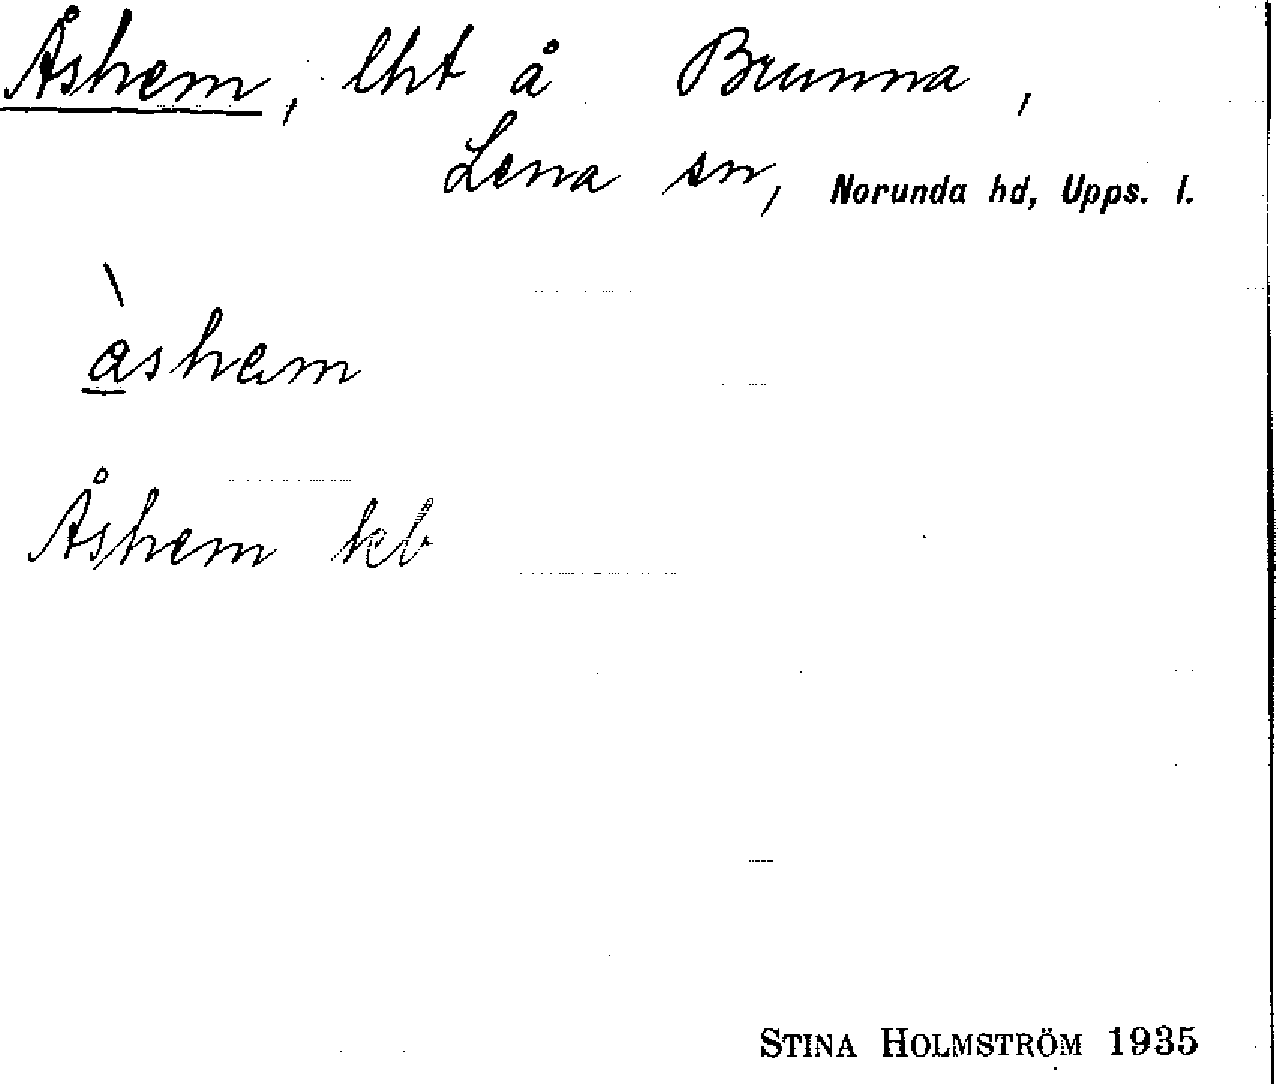 Åshem, lht å Brunna,
Lena sn, Norunda hd, Upps. l.
åshem
Åshem kb
STINA HOLMSTRÖM 1935